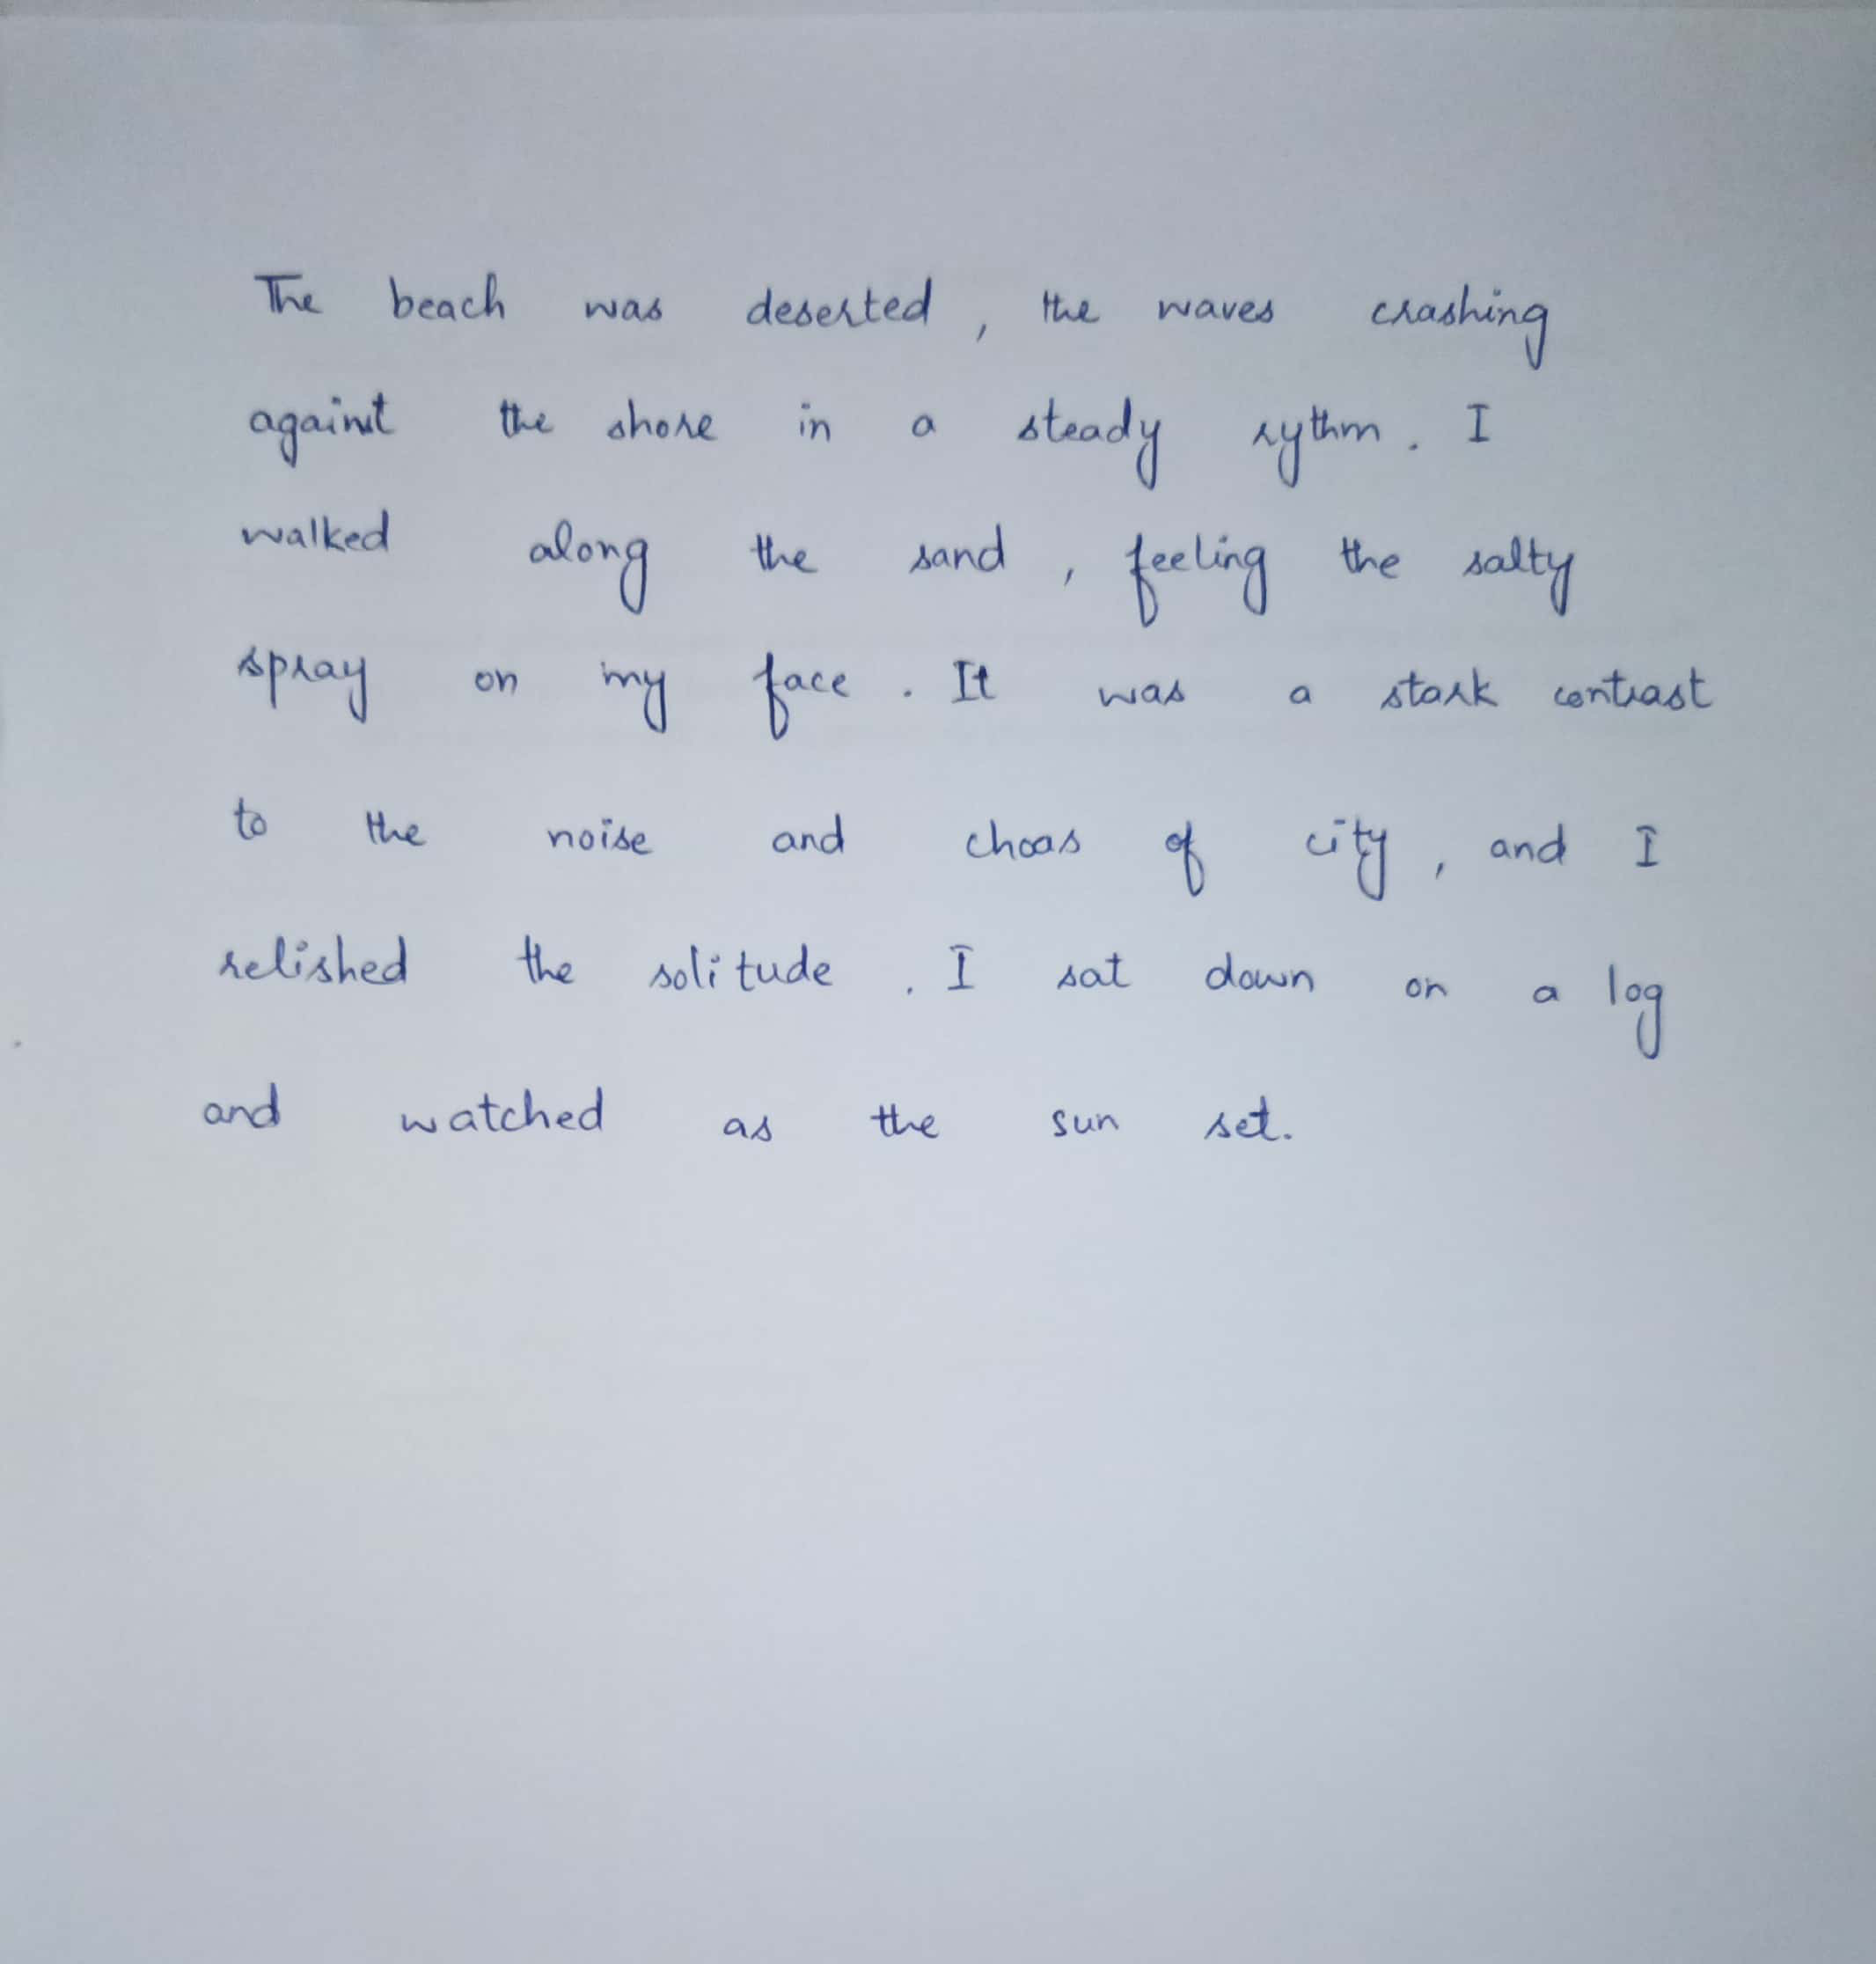 The beach was deserted, the waves crashing
against the shore in a steady rythm. I
walked along the sand, feeling the salty
spray on my face. It was a stark contrast
to the noise and choas of city, and I
relished the solitude. I sat down on a log
and watched as the sun set.